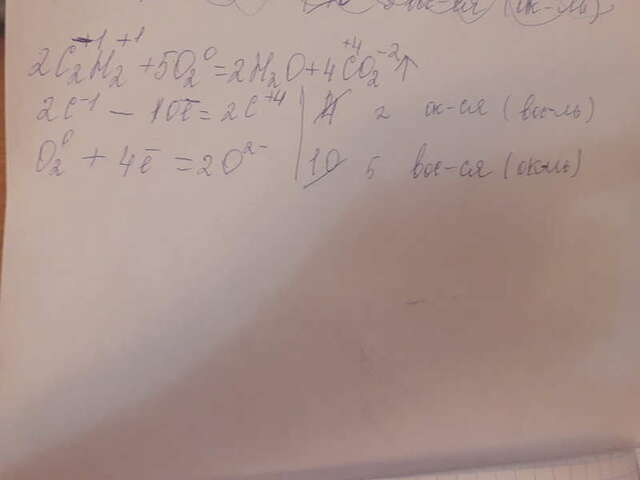 (ок-ль)
2C₂⁻¹H₂⁺¹ + 5O₂⁰ = 2H₂O + 4C⁺⁴O₂⁻² ↑
2C⁻¹ − 10ē = 2C⁺⁴ | 4 2 ок-ся (вос-ль)
O₂⁰ + 4ē = 2O²⁻ | 10 5 вос-ся (ок-ль)